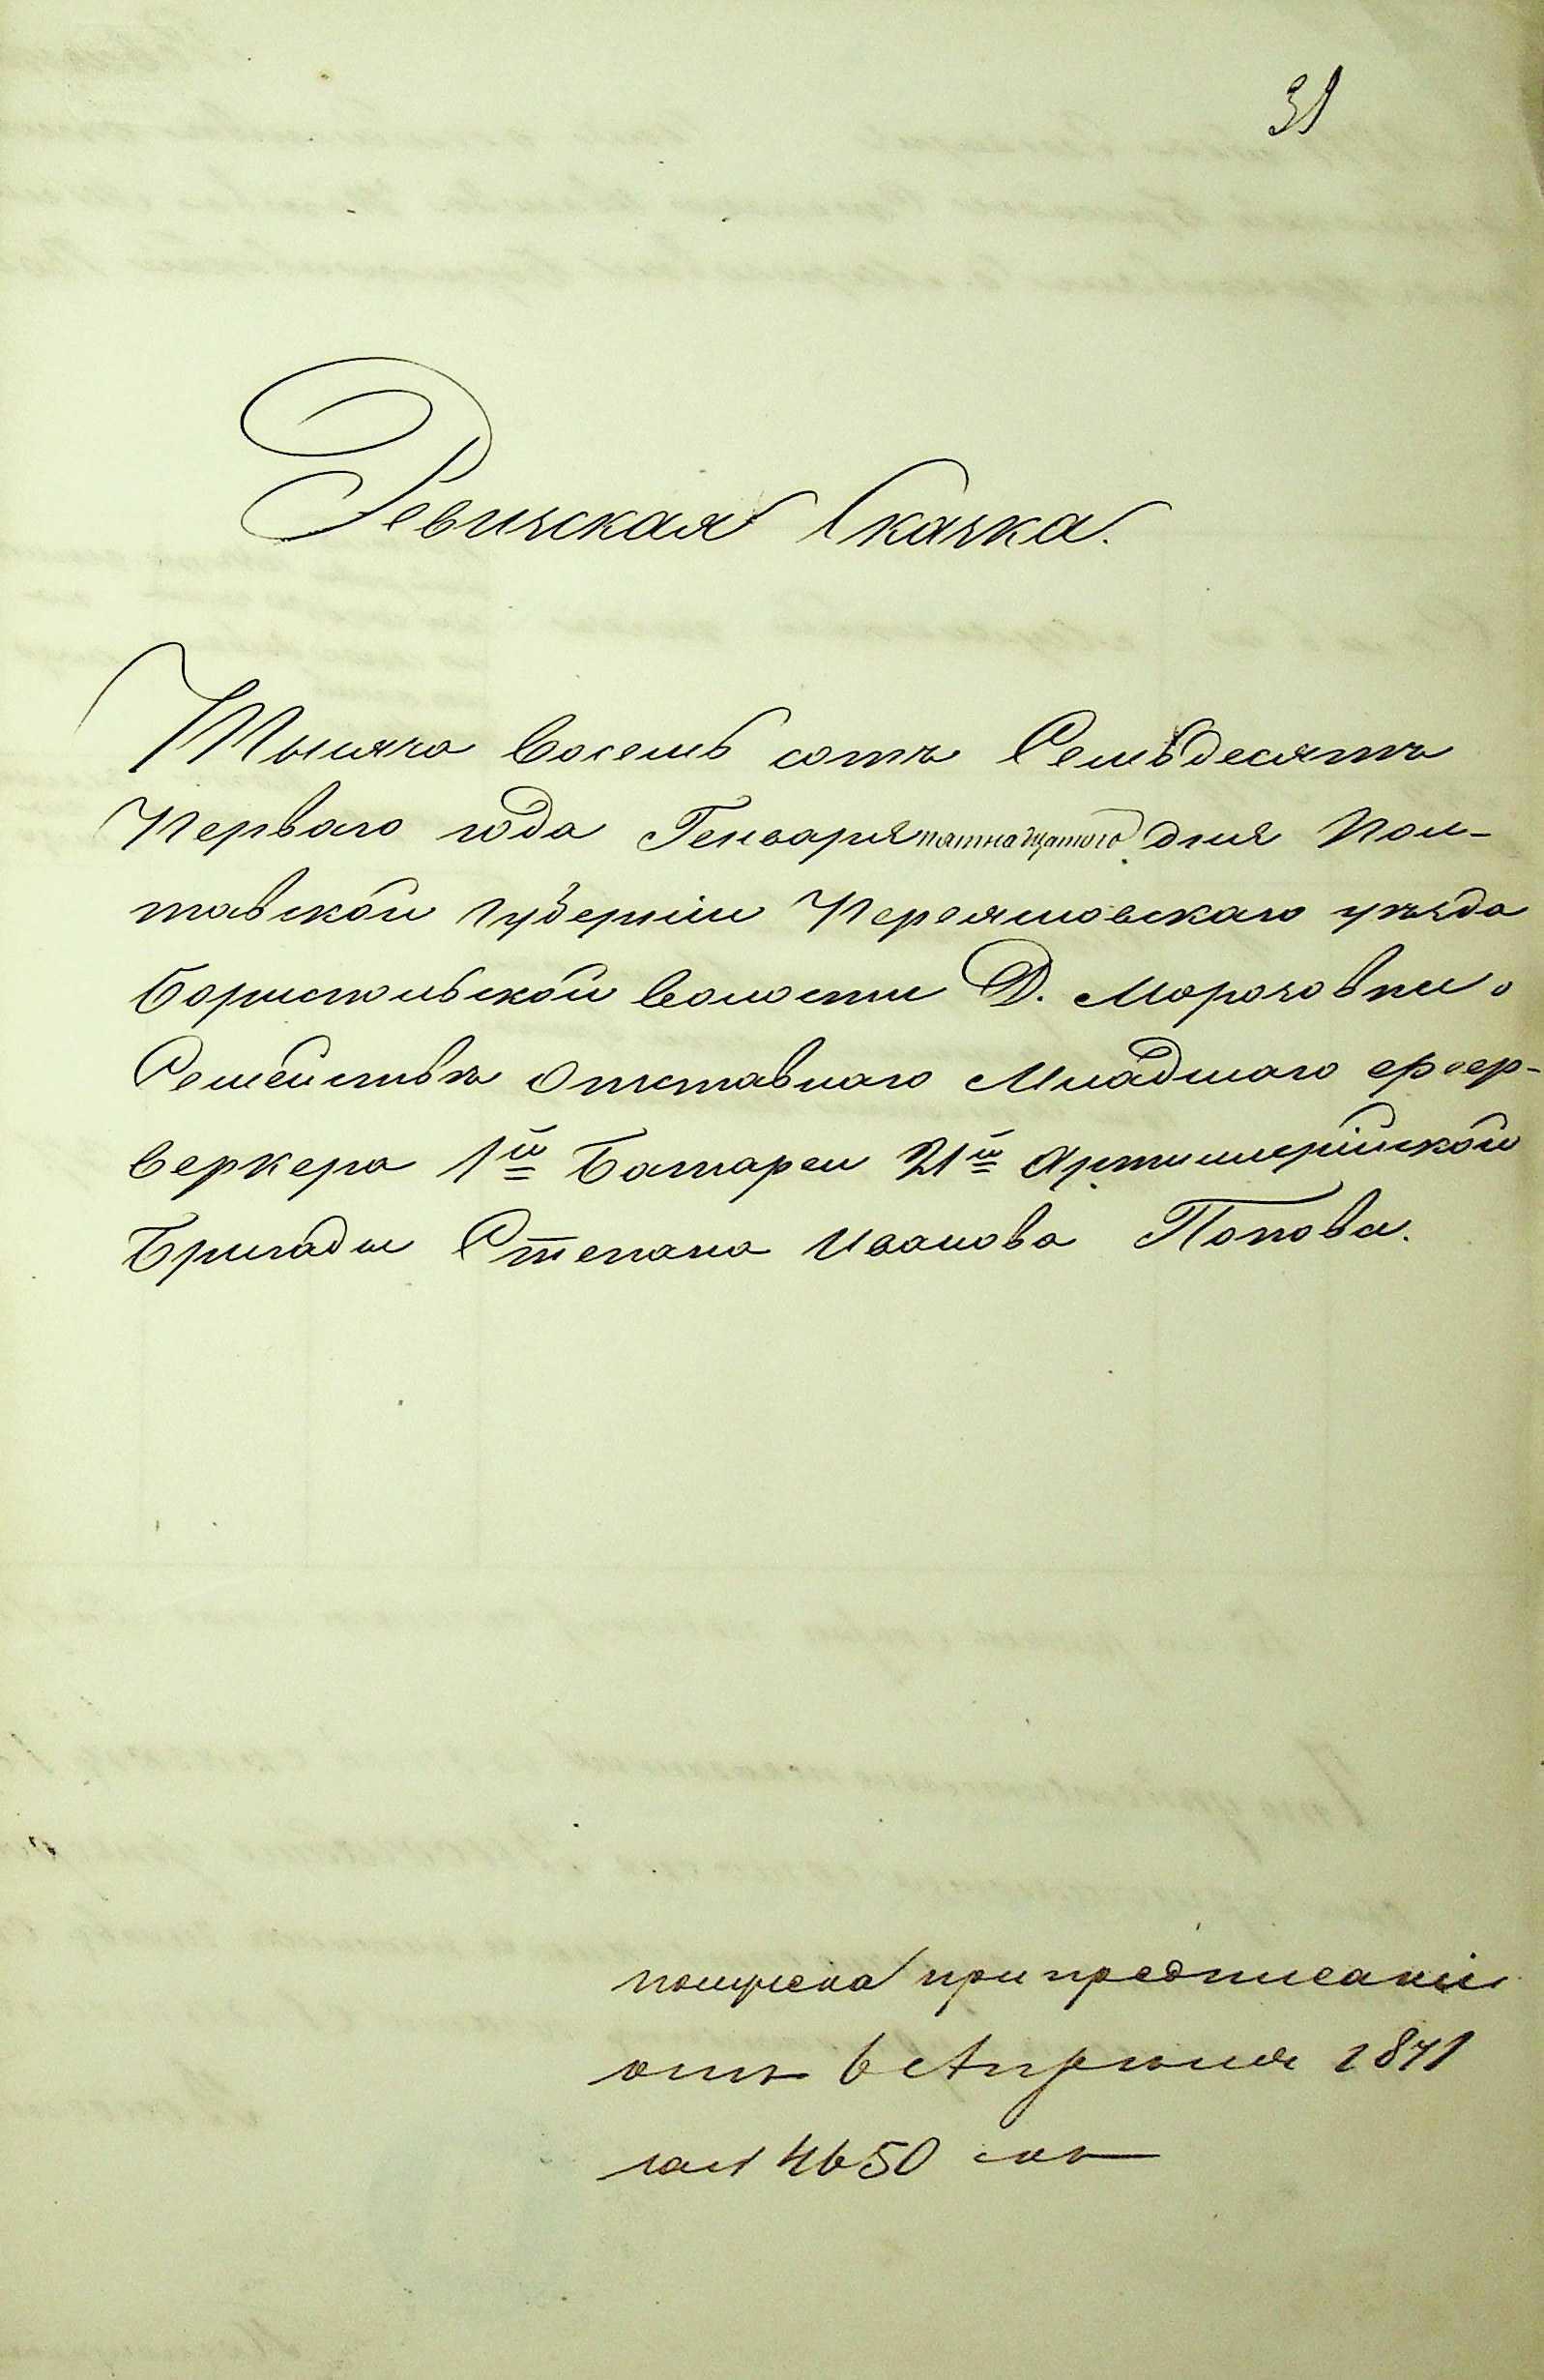 31
Ревизская Сказка.
Тысяча восемь сотъ Семьдесятъ
Перваго года Генваря пятнадцатого дня Пол-
тавской Губерніи Переяславскаго уѣзда
Бориспольской волости Д. Морозовки.
Семействѣ Отставнаго Младшаго феер-
веркера 1й Батареи 21й Артиллерійской
Бригады Степана Иванова Попова.
получена при предписаніи
отъ 6 Апрѣля 1871
4650